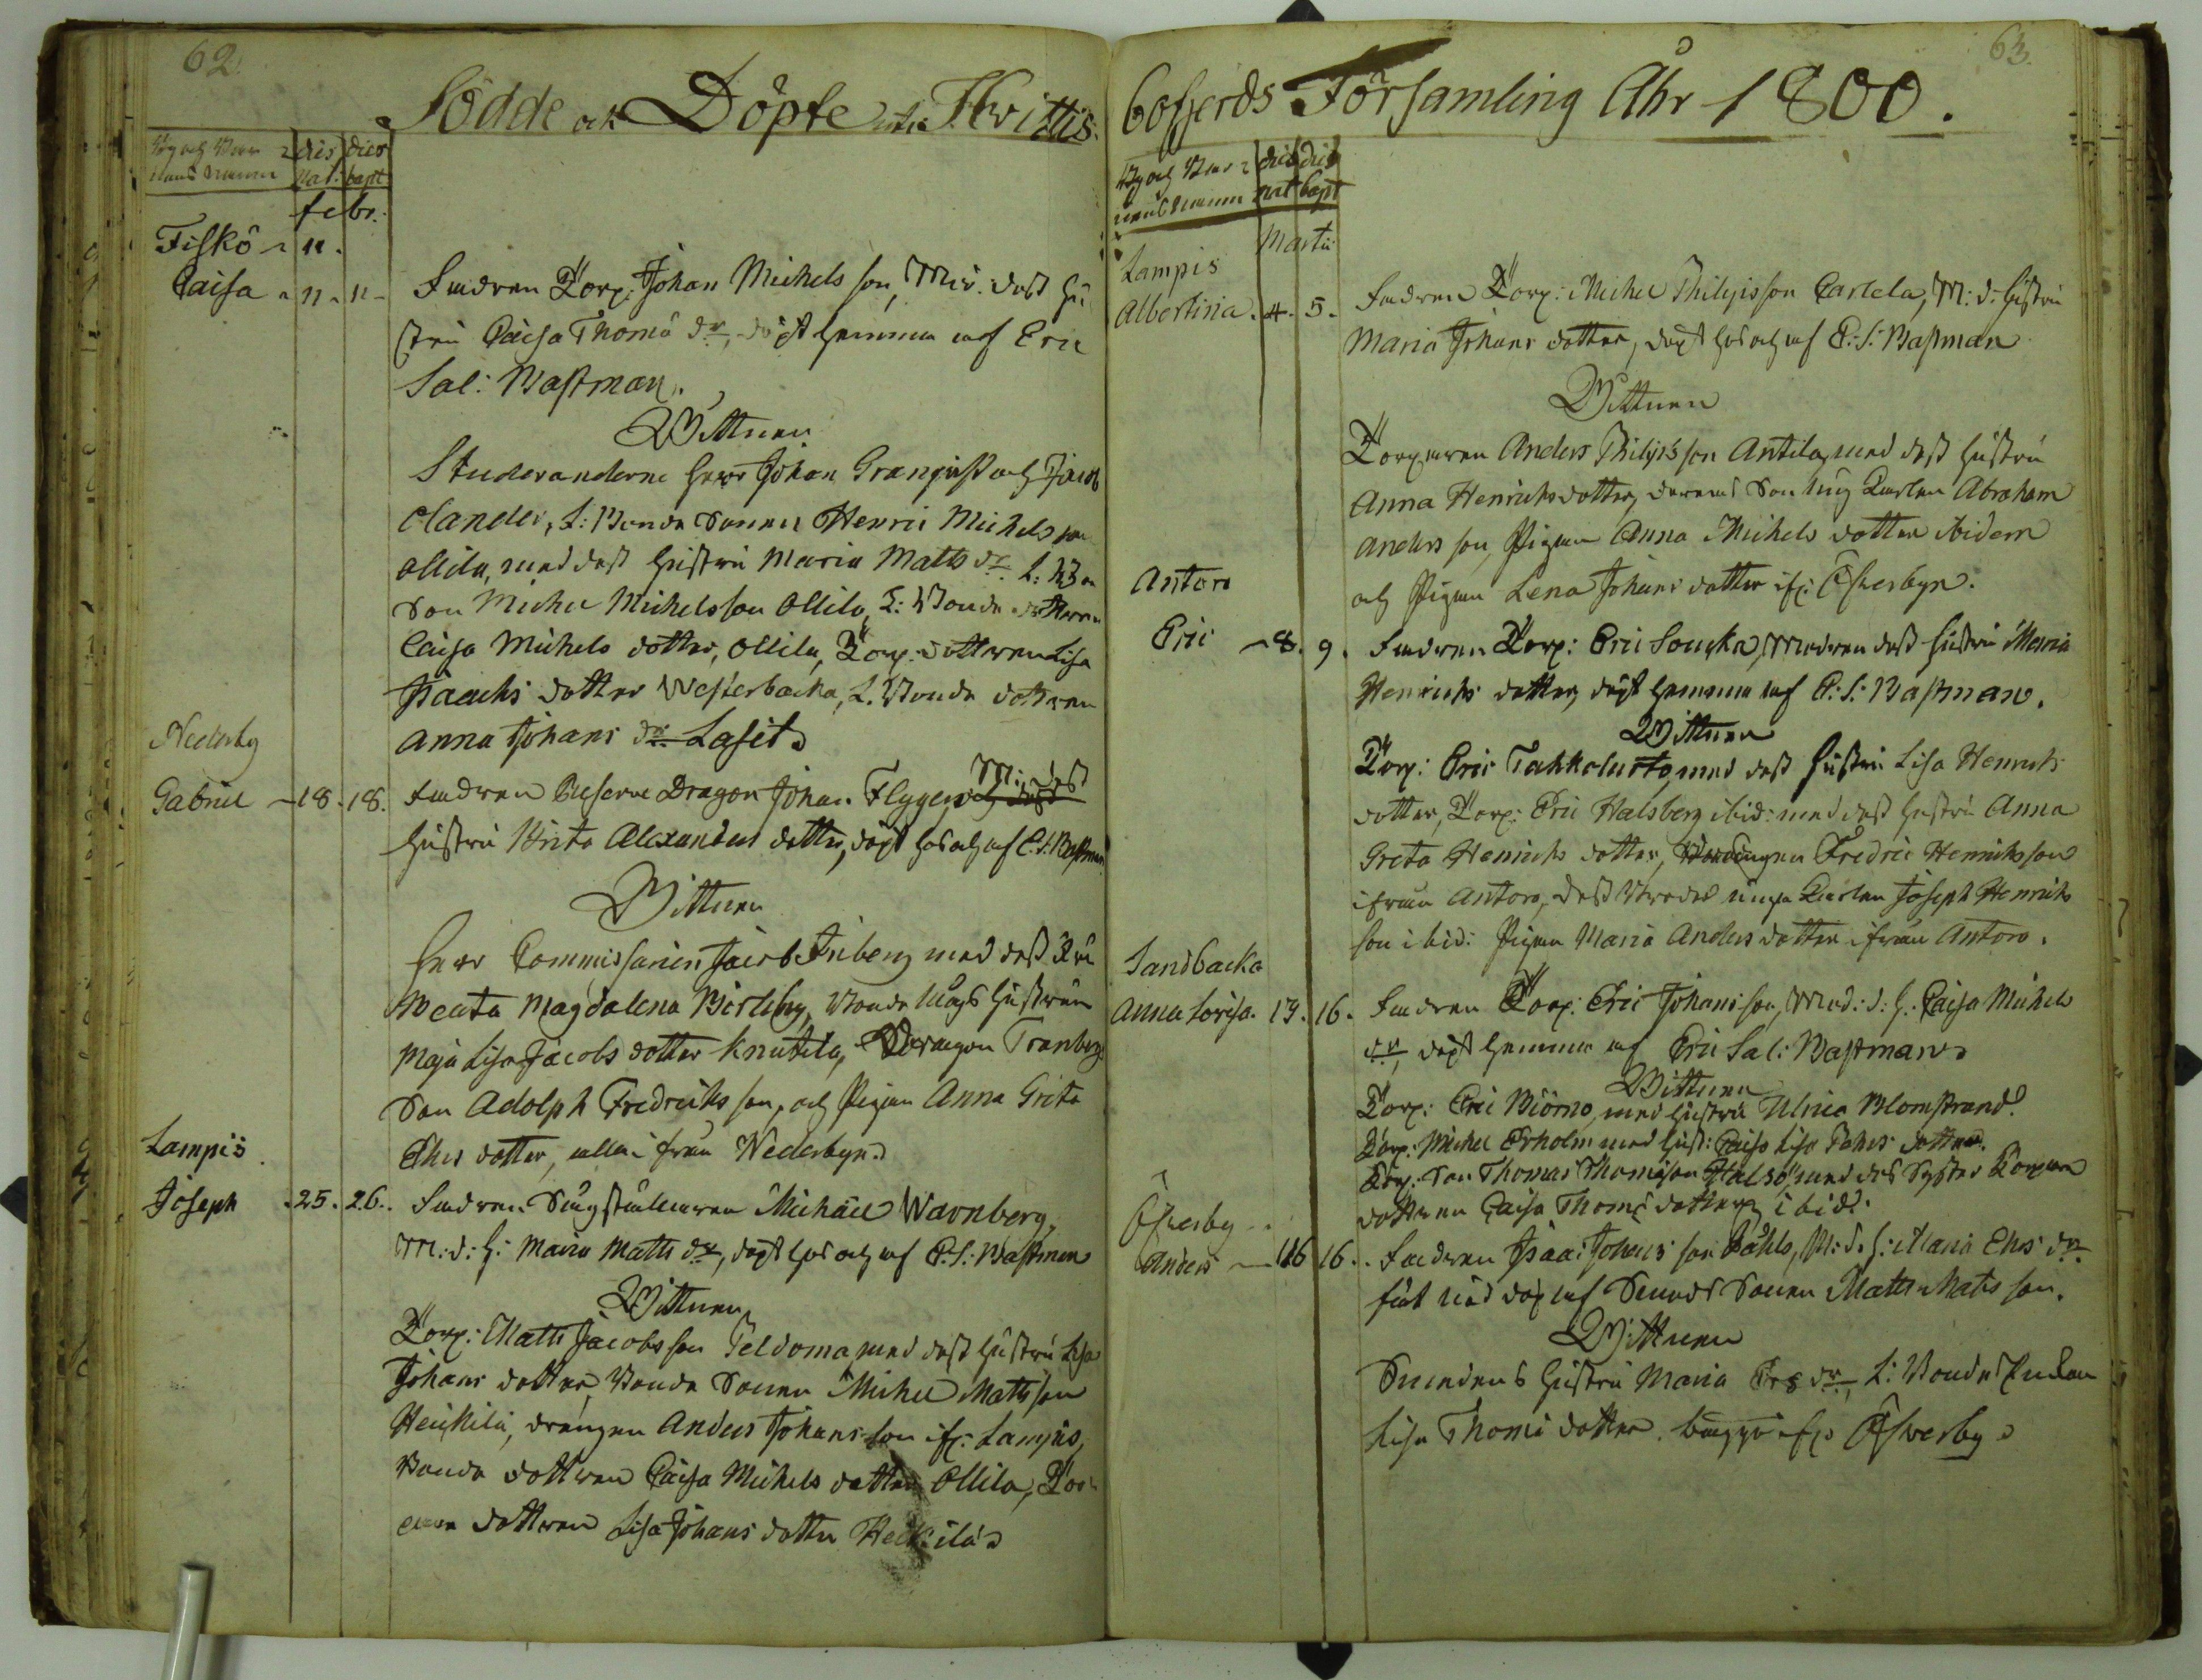 62.
Födde och Döpte uti Hvittis
By och Barn
ens namn
dies
Nat.
dies
bapt
febr.
Fiskö 11.
Caisa 11 11
Fadren Torp: Johan Michels son, Mod. dess hu
stru Caisa Thomæ dr, döpt hemma af Eric
Sal: Bastman.
Wittnen
Studeranderne Herr Johan Granqvist och Jacob
Olander, L: Bonde Sonen Henric Michels son
Ollila, med dess hustru Maria Matts dr. L: Bon
Son Michel Michelsson Ollila, L: Bonde dottren
Caisa Michels dotter, Ollila, Torp. dottren Lisa
Isaachs dotter Westerbacka, L. Bonde dottren
Anna Johans dr. Lasit
Nederby
Gabriel 18. 18. Fadren Reserve Dragon Johan Flygge, M: dess
hustru Brita Alexanders dotter, döpt hos och af E. S. Bastman
Wittnen
Herr Commissarien Jacob Friberg med dess Fru
Beata Magdalena Bir, Bonde Mågs hustrun
Maja Lisa Jacobs dotter Knutila, Dragon Tranberg
Son Adolph Fredrichs son, och Pigan Anna Greta
Ehrs dotter, alla ifrån Nederbyn.
Lampis
Joseph 25. 26. Fadren Michäel Warnberg,
M: d: h: Maria Matts dr, döpt hos och af E. S. Bastman
Wittnen
Torp: Matts Jacobs son Peldoma, med dess hustru Lisa
Johans dotter, Bonde Sonen Michel Matts son
Heickilä, drängen Anders Johans son ifr: Lampis,
Bonde dottren Caisa Michels dotter Ollila, Tor
aren dottren Lisa Johans dotter Heickilä
63.
bofjerds Församling Åhr 1800.
By och Bar
nens namn
dies
nat
dies
bapt
Martii
Lampis
Albertina. 4. 5. Fadren Torp: Michel Philipsson Carlela, M: d: hustru
Maria Johans dotter, döpt hos och af E: S: Bastman
Wittnen
Torparen Anders Philips son Antila, med dess hustru
Anna Henrichsdotter, deras Son Karlen Abraham
Anders son, Pigan Anna Michels dotter ibidem
och Pigan Lena Johans dotter ifr: Öfverbyn.
Antoro
Eric 8. 9. Fadren Torp: Eric Soucka, Modren dess hustru Maria
Henrichs dotter, döpt hemma af E: S: Bastman.
Wittnen
Torp: Eric Tahkoluoto, med dess hustru Lisa Henrichs
dotter, Torp: Eric Halsberg ibid: med dess hustru Anna
Greta Henrichs dotter, Fredric Henrichsson
ifrån Antoro, dess Broder unga Karlen Joseph Henrichs
son ibid: Pigan Maria Anders dotter ifrån Antoro.
Sandbacka
Anna Lovisa. 15. 16. Fadren Torp: Eric Johans son, Mod: d: h: Caisa Michels
dr, döpt hemma af Eric Sal: Bastman
Wittnen
Torp: Eric Biörno, med hustru Ulrica Blomstrand.
Torp: Michel Ekholm med hust: Caisa Lisa dotter.
Torp: Son Thomas Thomæson Halsö med des Syster Torparen
dottren Caisa Thomæ dotter, ibid:
Öfverby
Anders 16 16. Fadren Isaac Johans son Påhls, M: d: h: Maria Ehrs dr.
döp af Sonen Matts Mats son.
Wittnen
hustru Maria Ers dr, L: Bonde
Lisa Thomæ dotter, begge ifr: Öfverby